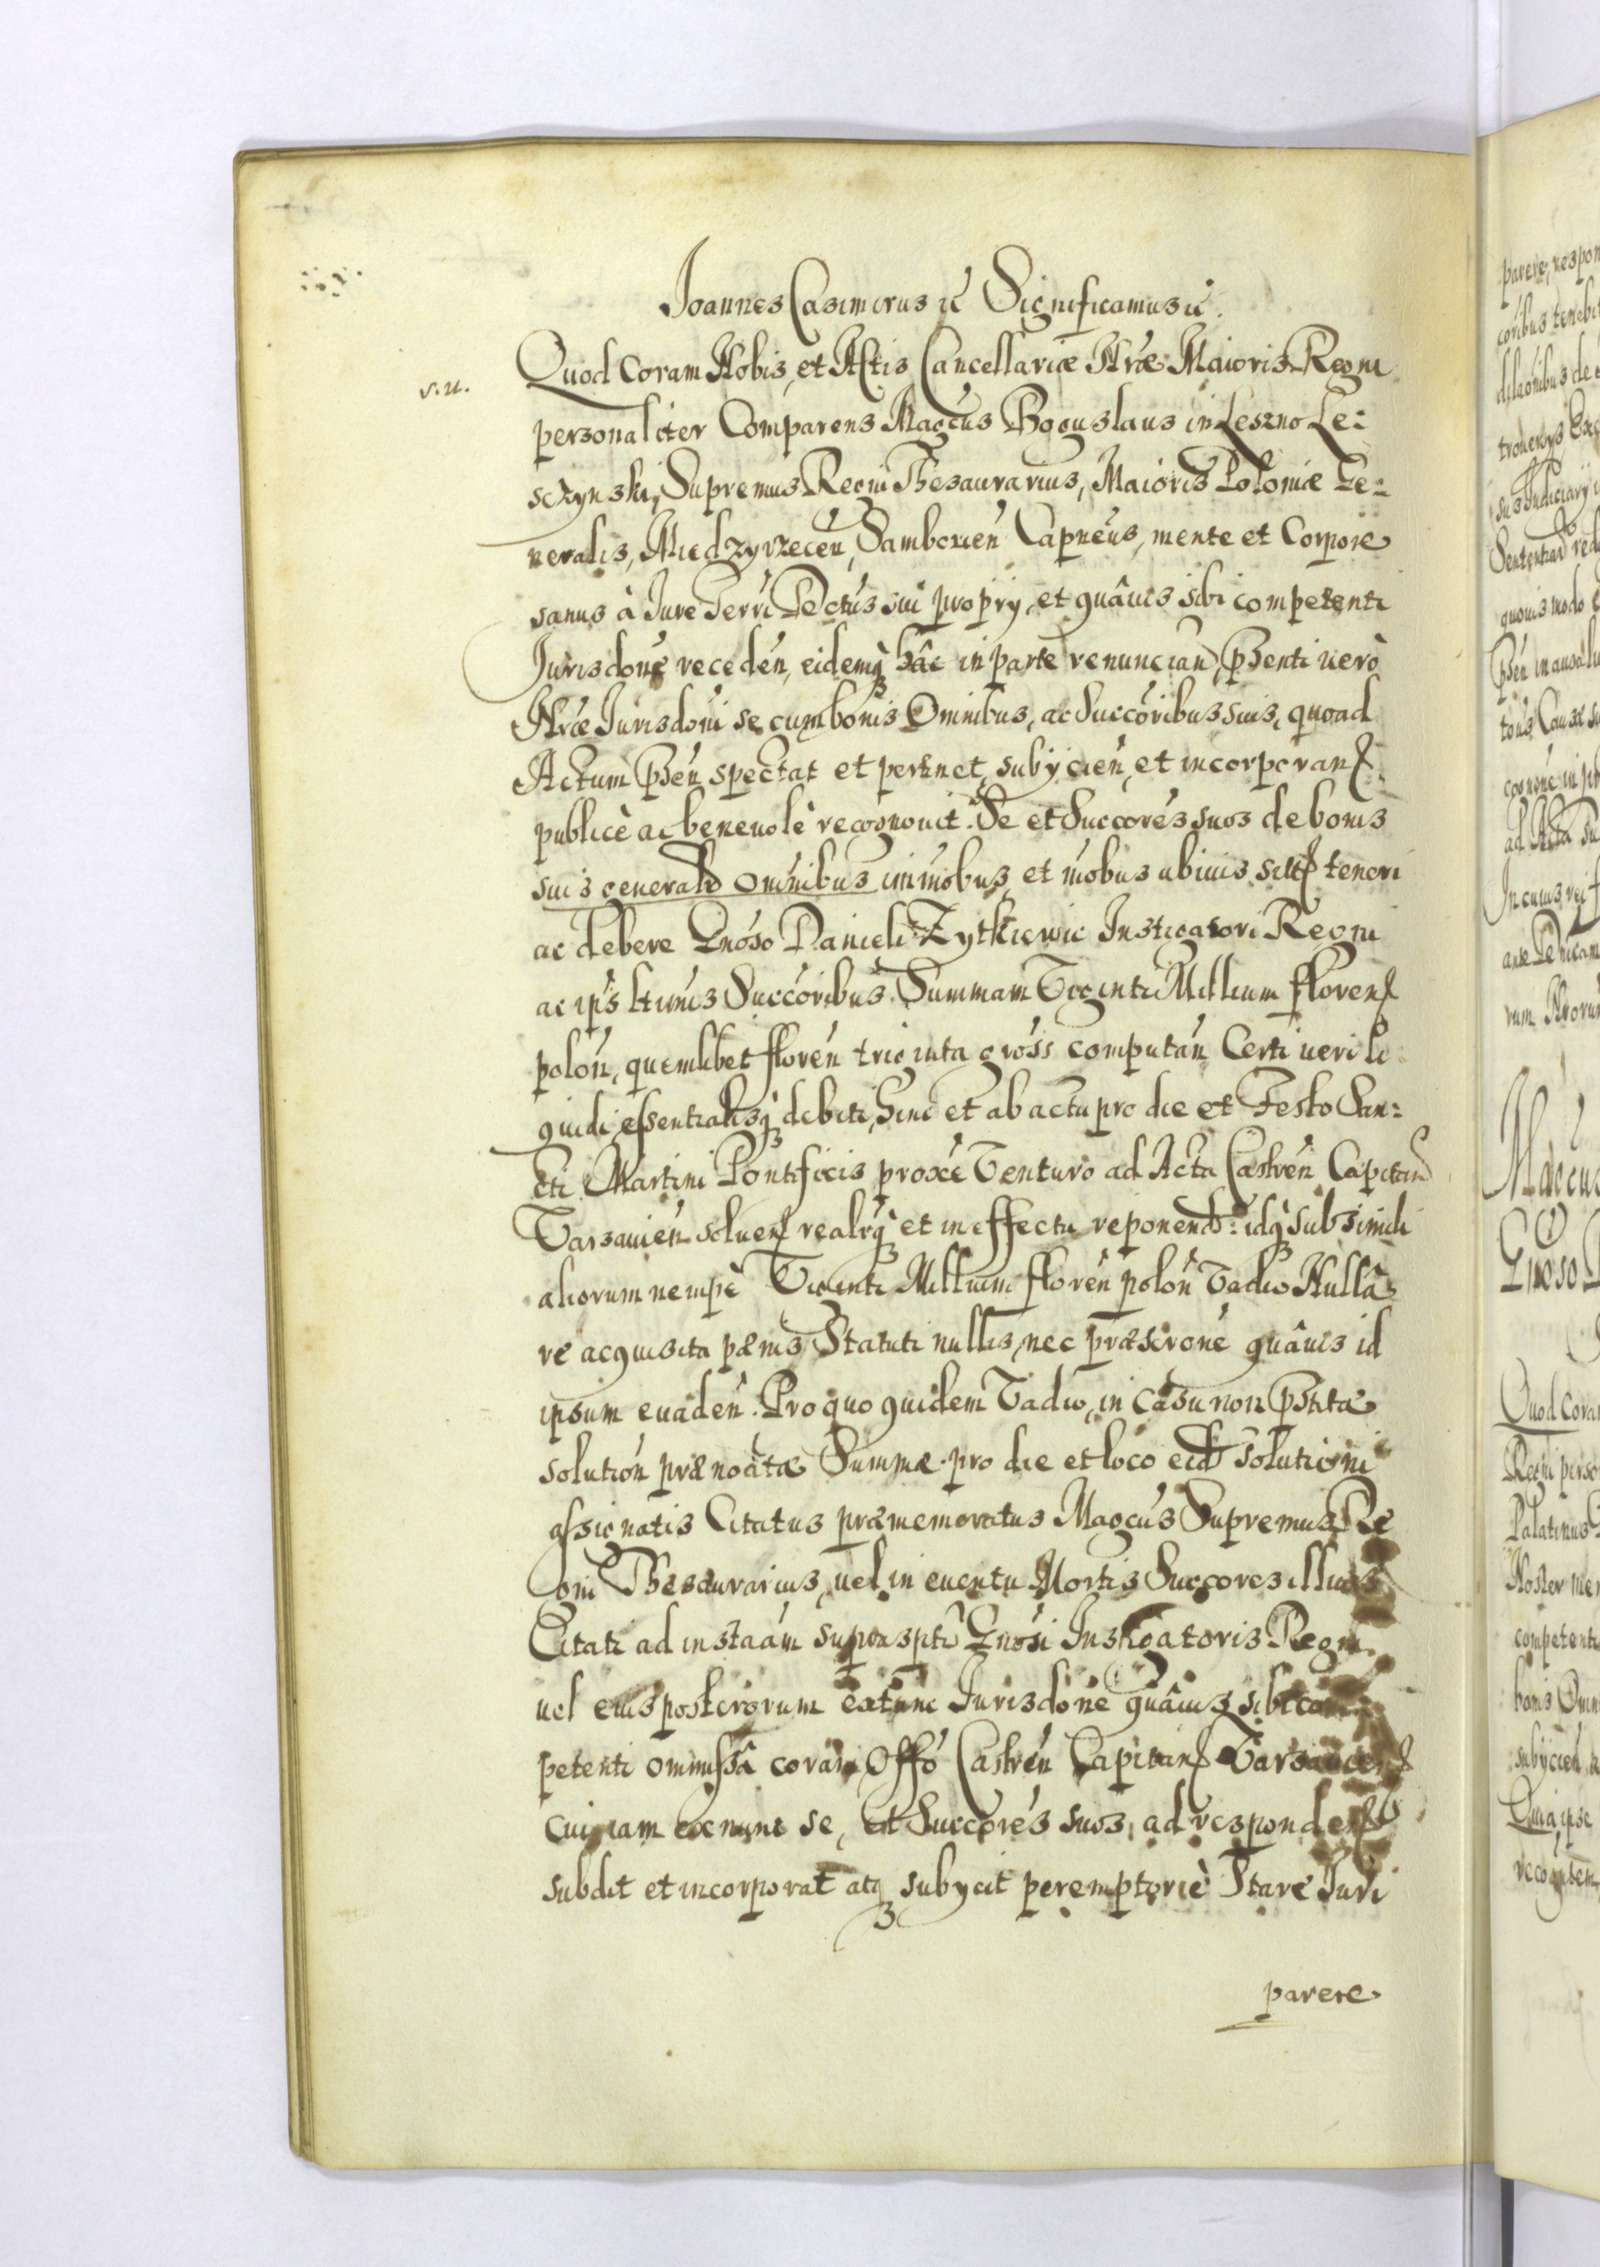 Joannes Casimirus etc Significamus etc.
v. u.
Quod coram Nobis, et Actis Cancellariæ Nræ Maioris Regni
personaliter Comparens Magcus Boguslaus in Leszno Le=
sczynski, Supremus Regni Thesaurarius, Maioris Poloniæ Ge=
neralis, Miedzyrzecen, Samborien Capneus, mente et Corpore
sanus à Jure Terri Dectus sui proprij, et quâuis sibi competenti
Jurisdone receden, eidemq hâc in parte renuncian, Psenti uerò
Nræ Jurisdoni se cum bonis Omnibus, ac Succoribus suis, quoad
Actum Psen spectat et pertinet, subijcien, et incorporan
publicè ac beneuolè recognouit. Se et Succores suos de bonis
suis generalr omnibus immobus, et mobus ubiuis sitt teneri
ac debere Gnoso Danieli Zytkiewic Instigatori Regni
ac ips ltimis Succoribus Summam Viginti Millium floren
polon, quemlibet floren triginta gross computan Certi ueri li
quidi essentialisq debiti, hinc et ab actu pro die et Festo San=
cti Martini Pontificis proxe Venturo ad Acta Castren Capitan
Varsauien soluen realrq et in effectu reponend: idq sub simili
aliorum nempè Viginti Millium floren polon Vadio Nullâ
re acquisita pænis Statuti nullis, nec præscrone quâuis id
ipsum euaden. Pro quo quidem Vadio, in Casu non Pstitæ
solution prænoatæ Summæ pro die et loco eid solutioni
assignatis Citatus præmemoratus Magcus Supremus Re
gni Thesaurarius, uel in euentu Mortis Succores illius
Citati ad instaam suprasipti Gnosi Instigatoris Regni
uel eius posterorum extunc Jurisdone quâuis sibi com
petenti ommissâ coram Offo Castren Capitan Varsauien
cui iam exnunc se, et Succores suos, ad responden
subdit et incorporat atq subijcit peremptoriè Stare Juri
parere